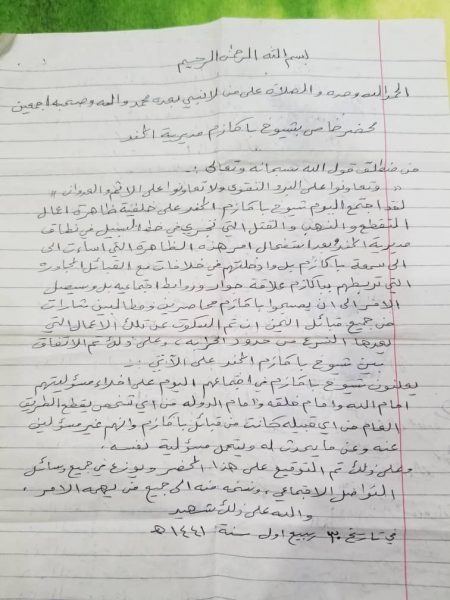 بسم الله الرحمن الرحيم
الحمد لله وحده والصلاة على من لا نبي بعده محمد واله وصحبه اجمعين
محضر خاص بشيوخ باكازم مديرية المحفد
من منطلق قول الله سبحانه وتعالى :-
" وتعاونوا على البر والتقوى ولا تعاونوا على الاثم والعدوان "
لقد اجتمع اليوم شيوخ باكازم المحفد على خلفية ظاهرة اعمال
التقطع والنهب والقتل التي تجري في خط السبيل في نطاق
مديرية المحفد وبعد استفحال امر هذه الظاهرة التي اساءت الى
الى سمعة باكازم بل وادخلتهم في خلافات مع القبائل المجاوره
التي تربطهم بباكازم علاقة جوار وروابط اجتماعيه بل وسيصل
الامر الى ان يصبحوا باكازم محاصرين ومطالبين بثارات
من جميع قبائل اليمن ان تم السكوت عن تلك الاعمال التي
يعدها الشرع من حدود الحرابه ، وعلى ذلك تم الاتفاق
بين شيوخ باكازم المحفد على الآتي :-
يعلنون شيوخ باكازم في اجتماعهم اليوم على اخلاء مسؤليتهم
امام الله وامام خلقه وامام الدوله من اي شخص يقطع الطريق
العام من اي قبيله كانت من قبائل باكازم وانهم غير مسؤلين
عنه وعن ما يحدث له ويتحمل مسؤلية نفسه .
وعلى ذلك تم التوقيع على هذا المحضر ويوزع في جميع وسائل
التواصل الاجتماعي ، ونسخه منه الى جميع من يهمه الامر ،
والله على ذلك شهيد
في تاريخ ٣٠ ربيع اول سنة ١٤٤١ هـ